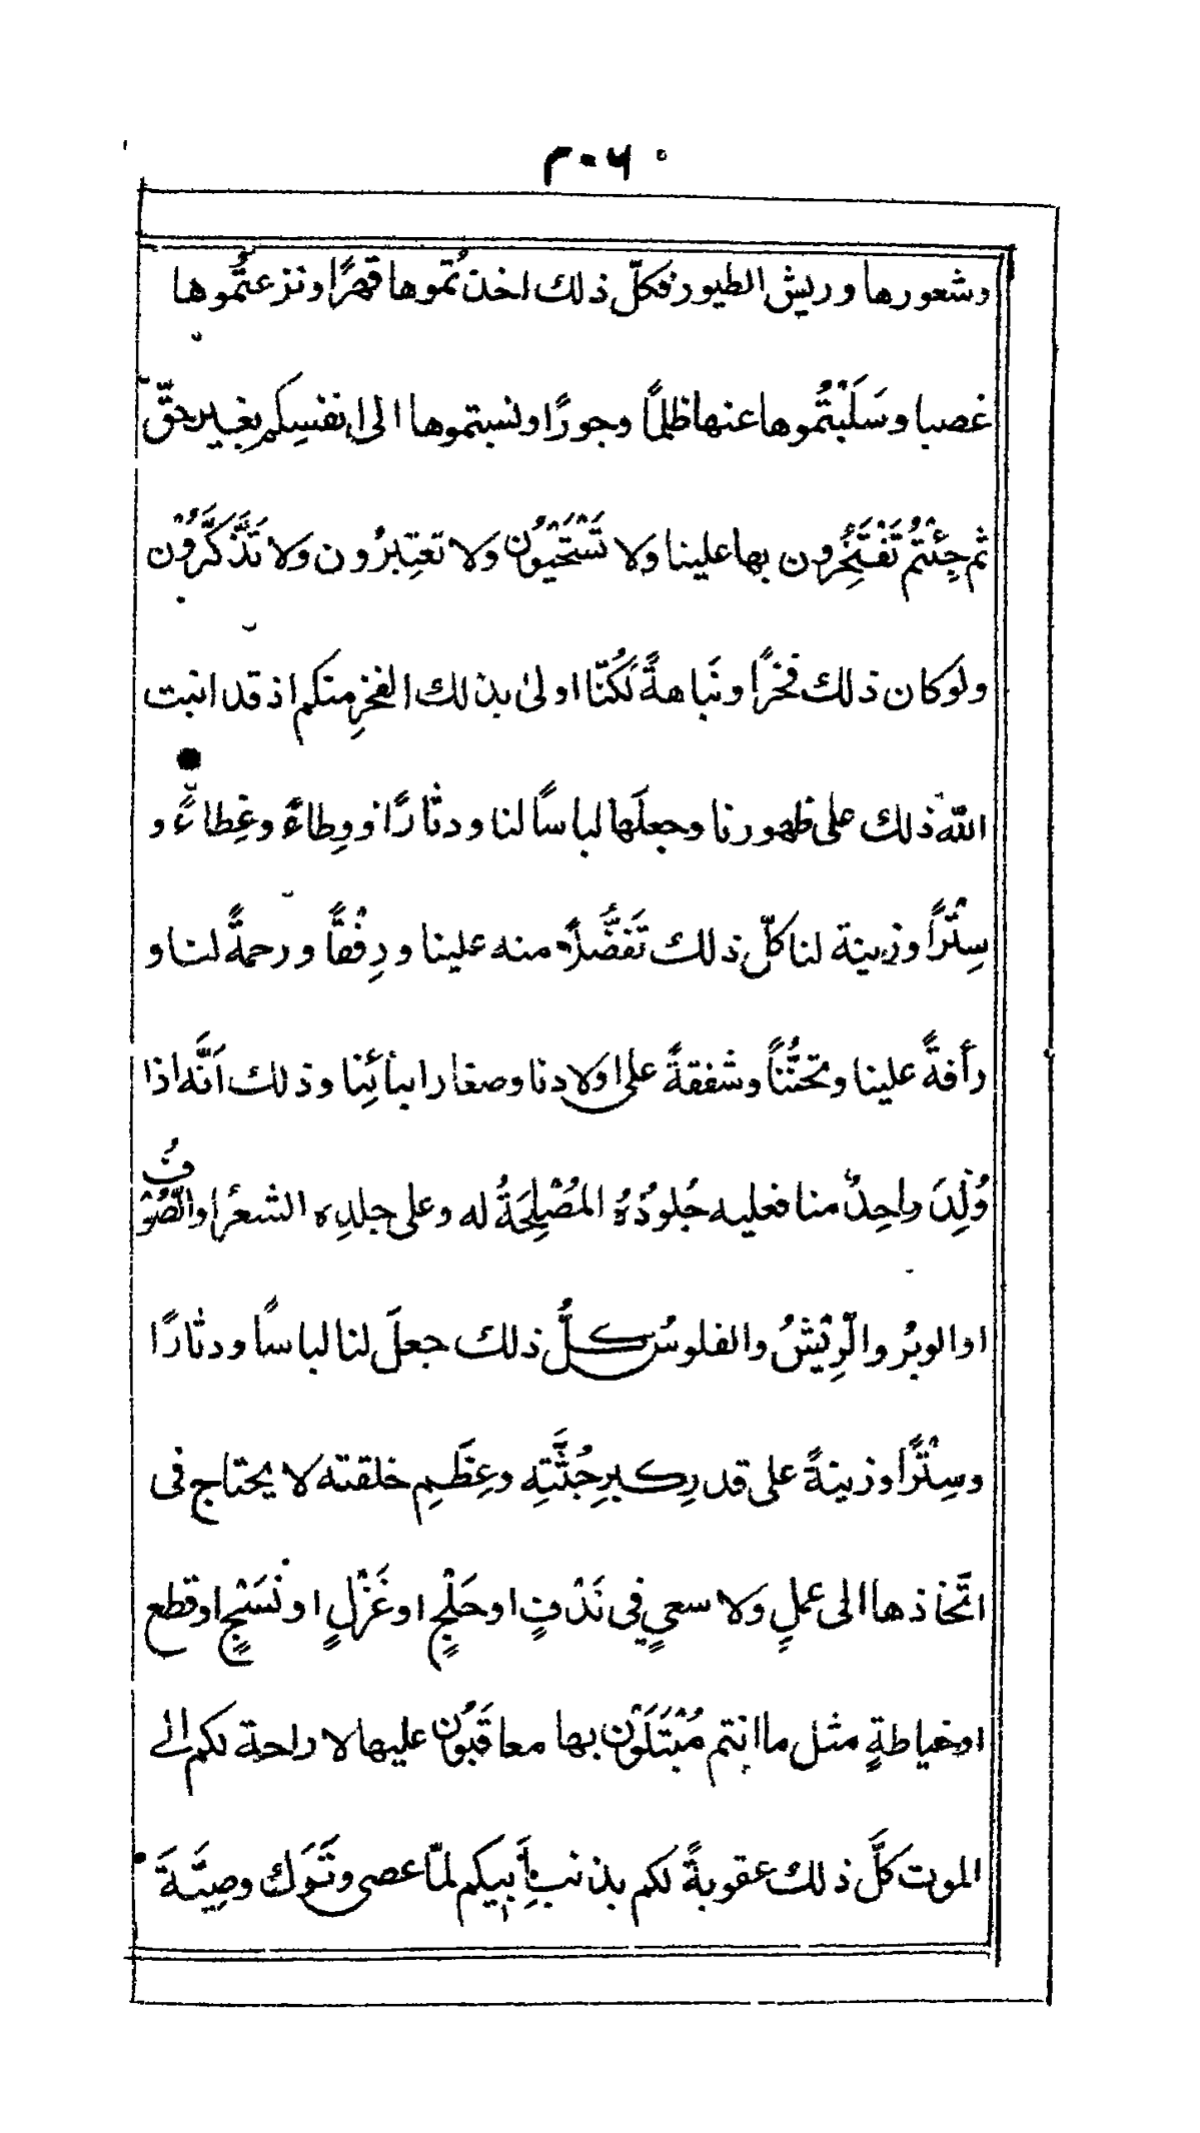 ٢٠٦
وشعورها وريش الطيور فكلّ ذلك اخذتُموها قهرًا ونزعتُموها
غصبا وسَلَبْتُموها عنها ظلمًا وجورًا ونسبتموها الى انفسِكم بغير حقّ
ثم جِئْتُم تَفْتَخِرُون بها علينا ولا تَسْتَحْيُون ولا تعتِبرُون ولا تَذَّكَّرُوْن
ولوكان ذلك فخرًا ونَباهةً لَكُنّا اولىٰ بذلك الفخرِ منكم اذ قد انبت
اللّٰه ذلك على ظهورنا وجعلَها لباسًا لنا ودثارًا ووِطاءً وغِطاءً و
سِتْرًا وزينة لنا كلّ ذلك تَفَضُّلًا منه علينا ورِفْقًا ورحمةً لنا و
رأفةً علينا وتحنُّنًا وشفقةً على اولادنا وصغار ابنائِنا وذلك اَنَّه اذا
وُلِدَ واحِدٌ منا فعليه جُلودُهُ المُصْلِحَةُ له وعلى جلدِه الشعرُ اوالصُّوْفُ
اوالوبرُ والرِّيْشُ والفلوسُ كلُّ ذلك جعلَ لنا لباسًا ودثارًا
وسِتْرًا وزينةً على قدرِ كبرِ جُثَّتِه وعِظَمِ خلقته لا يحتاج فى
اتّخاذها الى عملٍ ولا سعىٍ فى نَدْفٍ اوحَلْجٍ اوغَزْلٍ اونَسْجٍ اوقطع
اوخياطةٍ مثل ما انتم مُبْتَلَوْن بها معاقَبُون عليها لا راحة لكم الى
الموت كلُّ ذلك عقوبةً لكم بذنب أبيكم لمّا عصى وتَرَك وصِيَّةَ